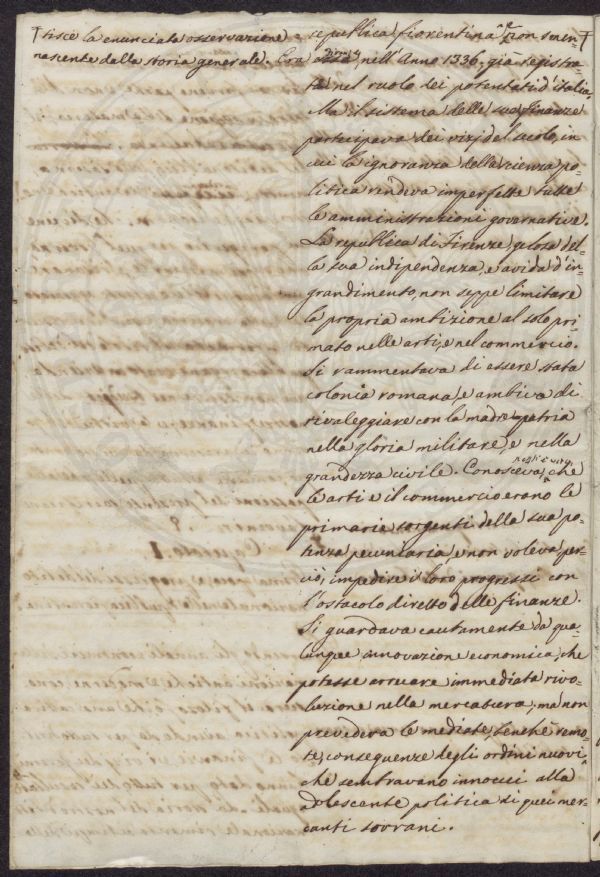 † tisce la enunciata osservazione
nascente dalla storia generale. Era
repubblica fiorentina non smen- †
essa, nell'Anno 1336. già registra-
Firenze
ta, nel ruolo dei potentati d'italia.
Ma il sistema delle sue finanze
partecipava dei vizj del secolo, in
cui la ignoranza della scienza po-
litica rendeva imperfette tutte
le amministrazioni governative.
La repubblica di Firenze, gelosa del-
la sua indipendenza, e avida d'in-
grandimento, non seppe limitare
la propria ambizione al solo pri-
mato nelle arti, e nel commercio.
Si rammentava di essere stata
colonia romana, e ambiva di
rivaleggiare con la madre patria
nella gloria militare, e nella
grandezza civile. Conosceva, che
le arti e il commercio erano le
primarie sorgenti della sua po-
tenza pecuniaria, e non voleva per-
ciò, impedire i loro progressi con
l'ostacolo diretto delle finanze.
Si guardava cautamente da qua-
lunque innovazione economica, che
potesse arrecare immediata rivo-
luzione nella mercatura, ma non
prevedeva le mediate, benchè remo-
te, conseguenze degli ordini nuovi
che sembravano innocui alla
adolescente politica di quei mer-
canti sovrani.